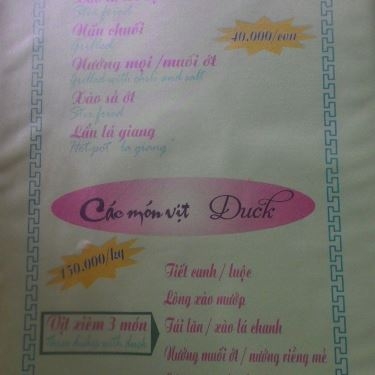 Stir fried
Nấu chuối
Grilled
40,000/con
Nướng mọi / muối ớt
Grilled with chili and salt
Xào sả ớt
Stir fired
Lẩu lá giang
Hot pot "la giang"
Các món vịt Duck
150.000/kg
Tiết canh / luộc
Lòng xào mướp
Vịt xiêm 3 món
three dishes with duck
Tái lăn / xào lá chanh
Nướng muối ớt / nướng riềng mẻ